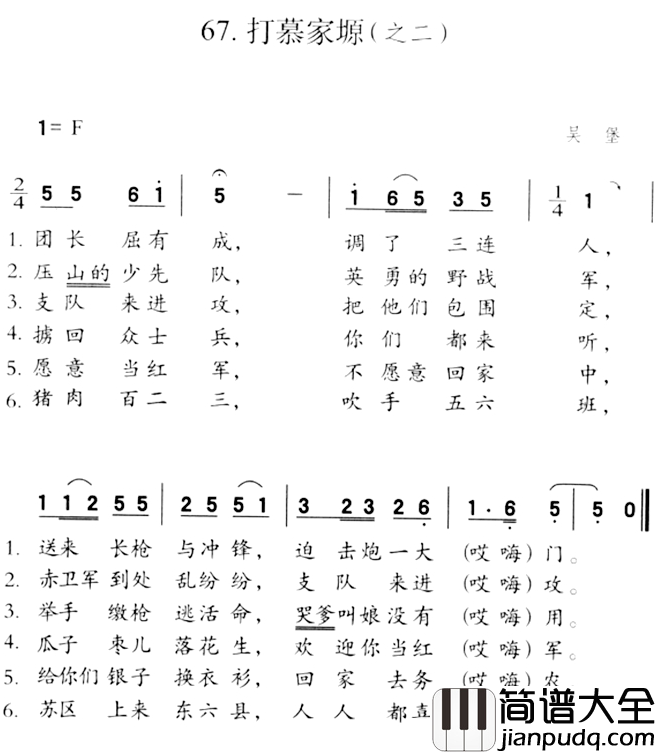 67.打慕家塬(之二)
1=F
吴 堡
2/4 5 5 6 1 | 5 — | 1 6 5 3 5 | 1/4 1 |
1. 团长 屈有 成, 调了 三连 人,
2. 压山的少先 队, 英勇的野战 军,
3. 支队 来进 攻, 把他们包围 定,
4. 掳回 众士 兵, 你们 都来 听,
5. 愿意 当红 军, 不愿意回家 中,
6. 猪肉 百二 三, 吹手 五六 班,
1 1 2 5 5 | 2 5 5 1 | 3 2 3 2 6 | 1· 6 5 | 5 0 ‖
1. 送来 长枪 与冲锋, 迫击炮一大 (哎嗨)门。
2. 赤卫军到处 乱纷纷, 支队 来进 (哎嗨)攻。
3. 举手 缴枪 逃活命, 哭爹叫娘没有 (哎嗨)用。
4. 瓜子 枣儿 落花生, 欢迎你当红 (哎嗨)军。
5. 给你们银子 换衣衫, 回家 去务 (哎嗨)农。
6. 苏区 上来 东六县, 人人 都
简谱大全
www.jianpudq.com